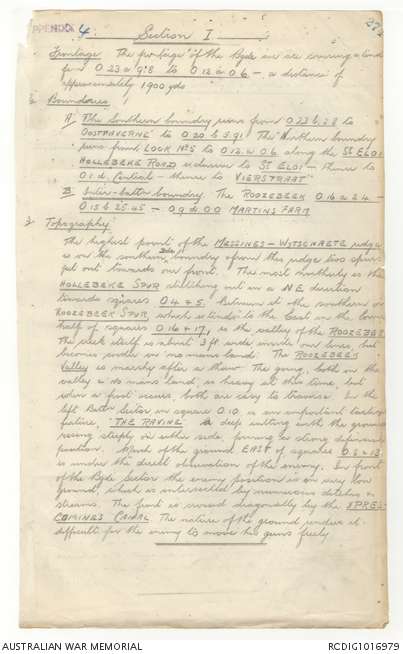 APPENDIX 4
Section I
1. Frontage The frontage of the Bgde we are covering extends
from O 23 a 9.8 to O 12 a 0.6 - a distance of
approximately 1900 yds
2. Boundaries
A The Southern boundry runs from O 23 b 2.8 to
OOSTTAVERNE to O 20 b 3.91. The Northern boundry
runs from LOCK No 5 to O 12 a 0.6 along the ST ELOI
HOLLEBEKE ROAD inclusive to ST ELOI - thence to
O 1 d. Central - thence to VIERSTRAAT
B Inter-battn boundry. The ROOZEBEEK O 16 a 2.4 -
O 15 b 25.45 - O 9 d 0.0 MARTINS FARM
3. Topography
The highest point of the MESSINGS-WYTSCHAETE ridge
is on the southern Bde boundry & from this ridge two spurs
jut out towards our front. The most northerly is the
HOLLEBEKE SPUR stretching out in a N.E. direction
towards squares O 4 & 5. Between it & the southern or
ROOZEBEEK SPUR which extends to the East in the lower
half of squares O 16 & 17, is the valley of the ROOZEBEEK
The beek itself is about 3 ft wide inside our lines, but
becomes wider in no mans land. The ROOZEBEEK
Valley is marshy after a thaw. The going, both in the
valley & No mans land, is heavy at this time, but
when a frost occurs, both are easy to traverse. In the
left Battn Sector in square O 10 is an important tactical
feature, "THE RAVINE" a deep cutting with the ground
rising steeply on either side, forming a strong defensive
position. Most of the ground EAST of squares O 8 & 13
is under the direct observation of the enemy. In front
of the Bgde Sector the enemy position is on very low
ground, which is intersected by numerous ditches &
streams. The front is crossed diagonally by the YPRES-
COMINES CANAL The nature of the ground renders it
difficult for the enemy to move his guns freely
AUSTRALIAN WAR MEMORIAL
RCDIG1016979